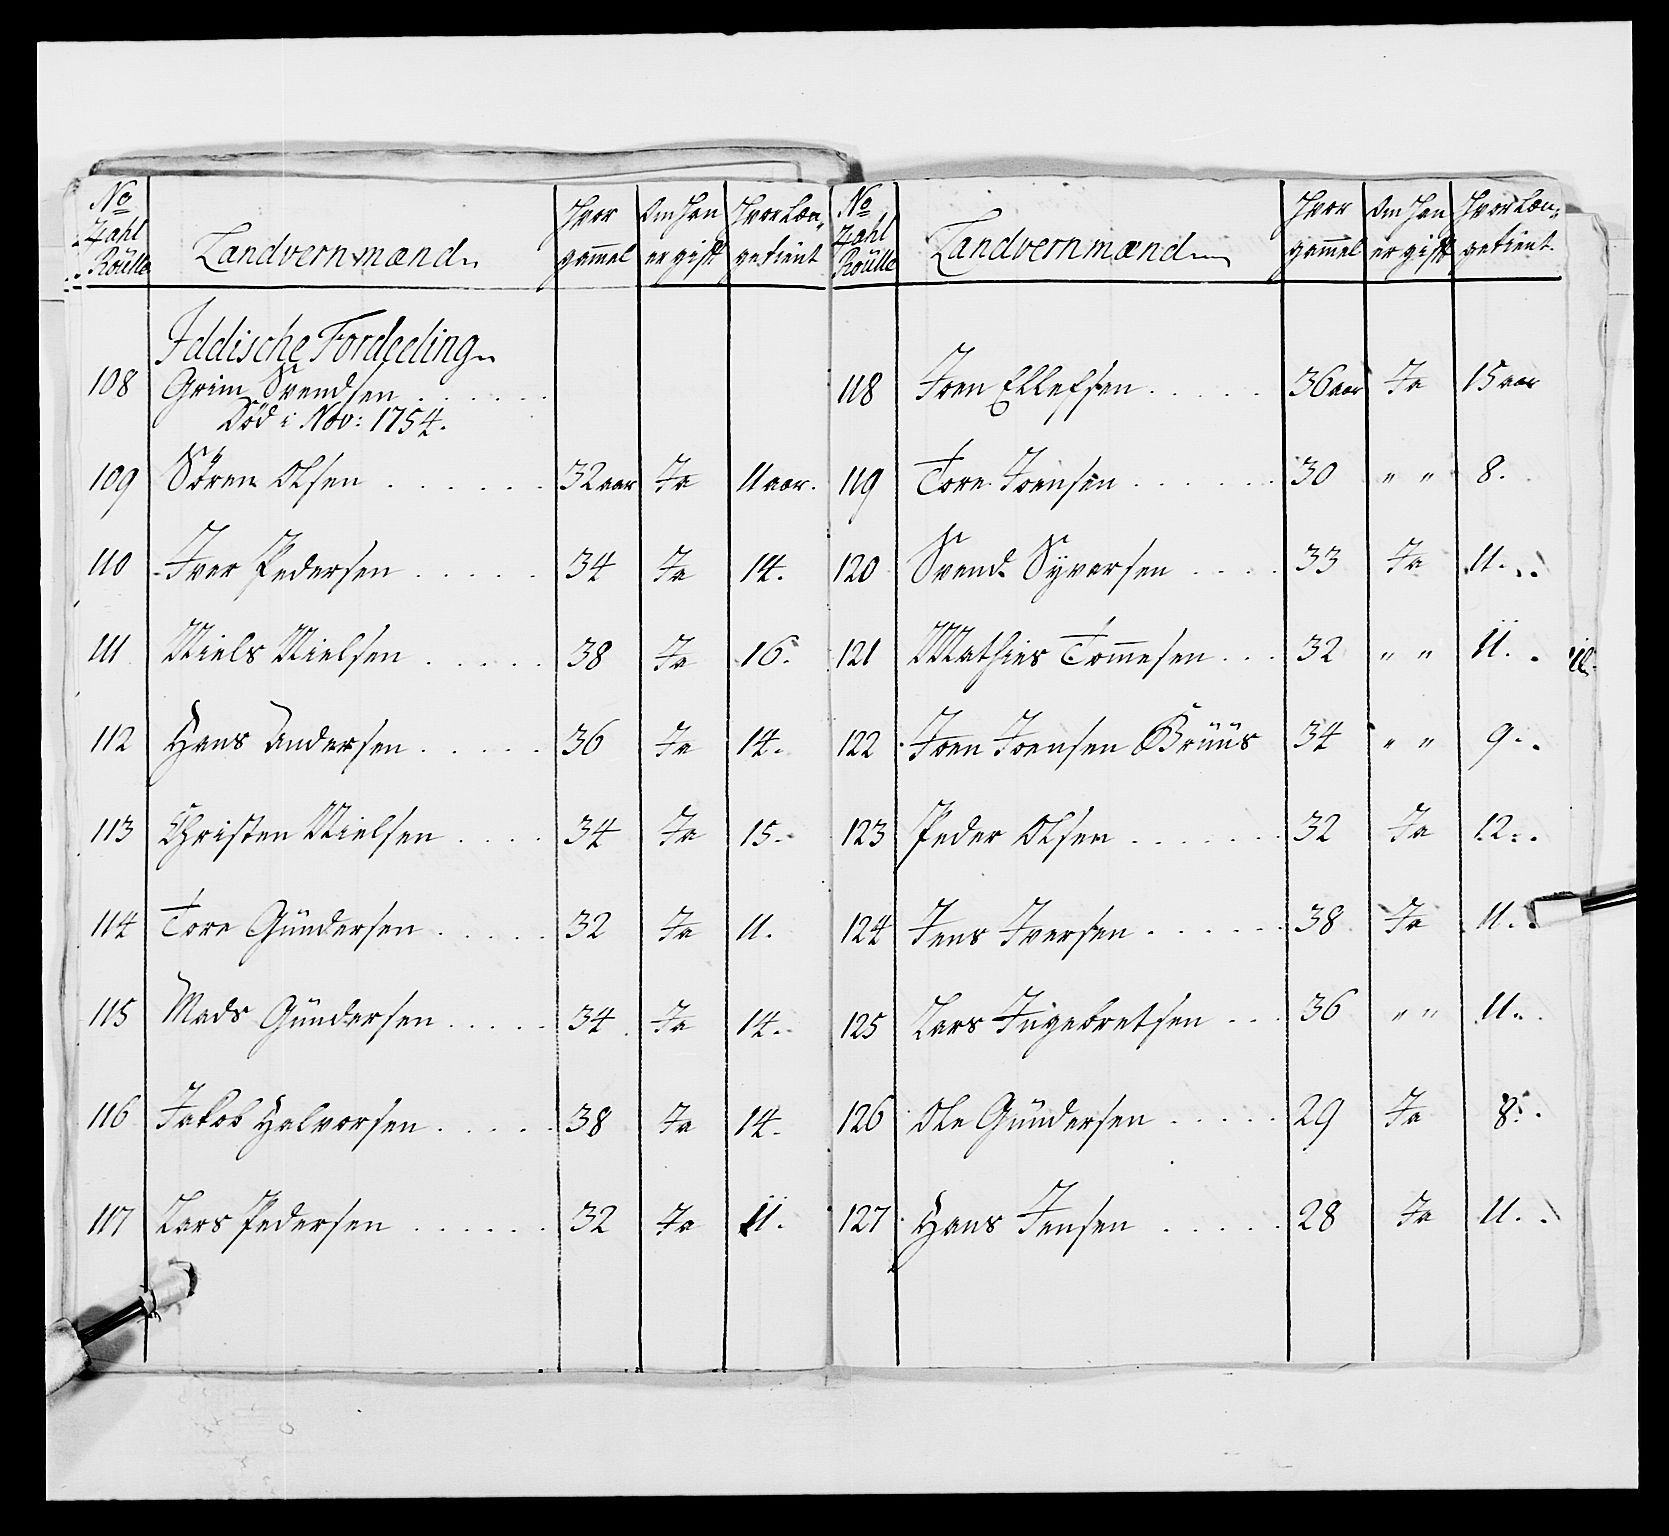 No Zahl Roulle | Landvernmænd | Hvor gammel | Om han er gift | Hvor Læn: getient
Iddische Fordeeling
108 Grim Svendsen . . . . . .
Död i Nov: 1754.
109 Sören Olsen . . . . . . 32 aar Ja 11 aar.
110 Iver Pedersen . . . . . 34 Ja 14.
111 Niels Nielsen . . . . . 38 Ja 16.
112 Hans Andersen . . . . . 36 Ja 14.
113 Christen Nielsen . . . . 34 Ja 15.
114 Tore Gündersen . . . . . 32 Ja 11.
115 Mads Gündersen . . . . . 34 Ja 14.
116 Jakob Halvorsen . . . . . 38 Ja 14.
117 Lars Pedersen . . . . . . 32 Ja 11.
No Zahl Roulle | Landvernmænd | Hvor gammel | Om Han er gift | Hvor Læn: getient
118 Joen Ellefsen . . . . . 36 aar Ja 15 aar
119 Tore Joensen . . . . . . 30 " " 8.
120 Svend Syversen . . . . 33 Ja 11.
121 Mathies Tommesen . . . 32 " " 11.
122 Joen Joensen Brüüs 34 " " 9.
123 Peder Olsen . . . . . . 32 Ja 12.
124 Jens Iversen . . . . . . 38 Ja 11.
125 Lars Ingebretsen . . . 36 " " 11.
126 Ole Gündersen . . . . . 29 Ja 8.
127 Hans Jensen . . . . . 28 Ja 11.